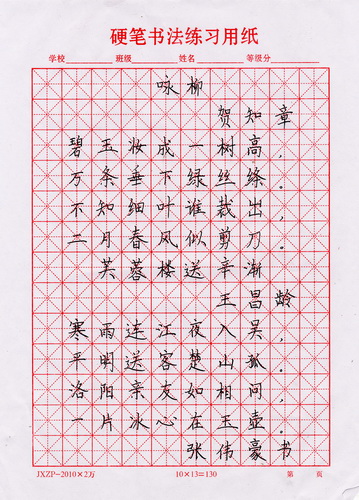 硬笔书法练习用纸
学校 班级 姓名 等级分
咏柳
贺知章
碧玉妆成一树高，
万条垂下绿丝绦。
不知细叶谁裁出，
二月春风似剪刀。
芙蓉楼送辛渐
王昌龄
寒雨连江夜入吴，
平明送客楚山孤。
洛阳亲友如相问，
一片冰心在玉壶。
张伟豪书
JXZP-2010×2万 10×13=130 第 页